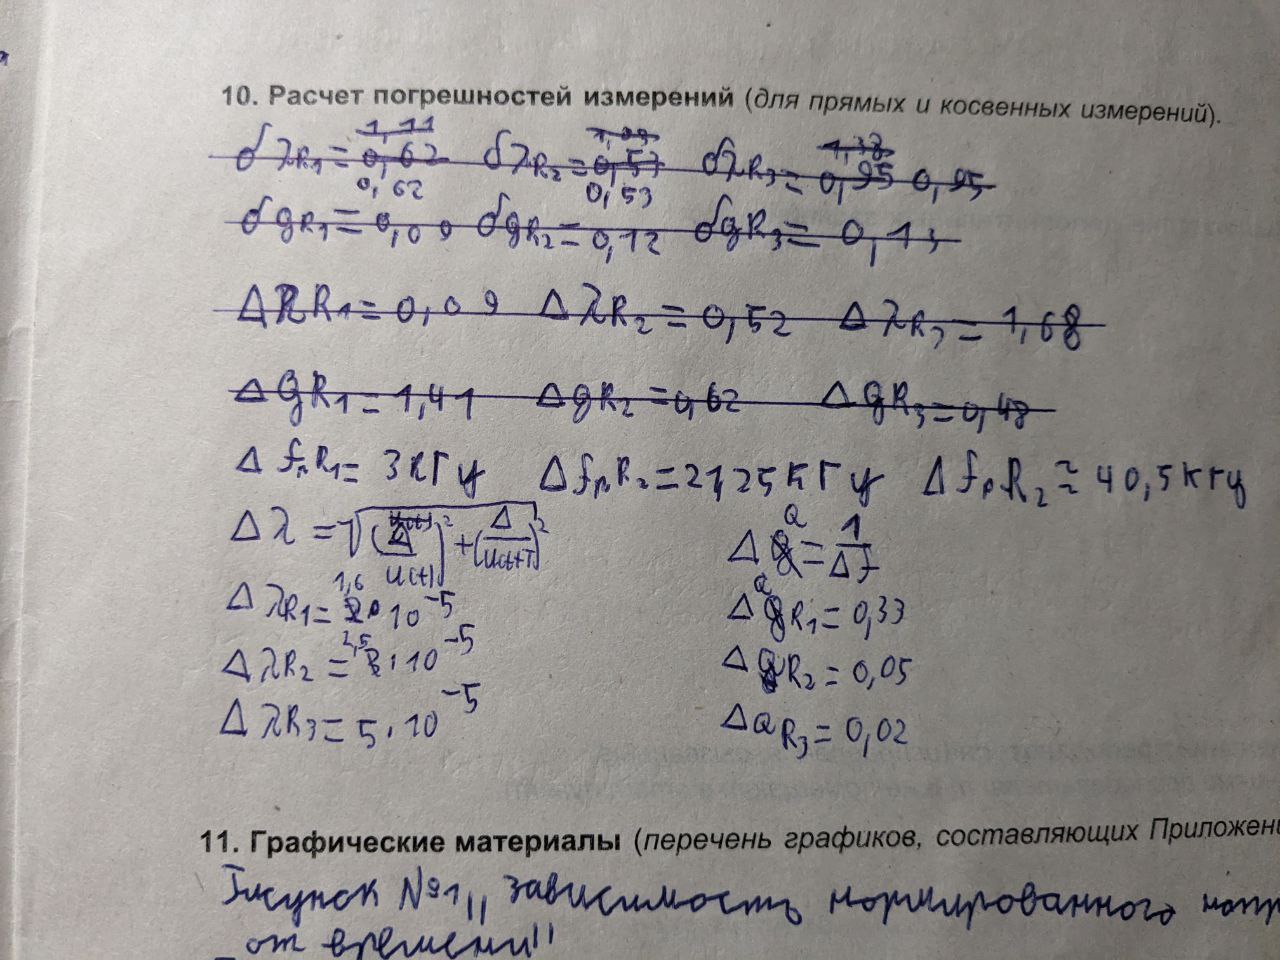 10. Расчет погрешностей измерений (для прямых и косвенных измерений).
1,11 1,09 1,38
δλR1 = 0,62 δλR2 = 0,53 δλR3 = 0,95 0,95
0,62 0,53
δgR1 = 0,09 δgR2 = 0,12 δgR3 = 0,13
ΔλR1 = 0,09 ΔλR2 = 0,52 ΔλR3 = 1,68
ΔgR1 = 1,41 ΔgR2 = 0,62 ΔgR3 = 0,48
ΔfрR1 = 3кГц ΔfрR2 = 21,25кГц ΔfрR2 ≈ 40,5кГц
Δλ = √((Δ/U(t))² + (Δ/U(t+T))²) ΔQ = 1/Δf
ΔλR1 = 1,6·10⁻⁵ ΔQR1 = 0,33
ΔλR2 = 2,5·10⁻⁵ ΔQR2 = 0,05
ΔλR3 = 5·10⁻⁵ ΔQR3 = 0,02
11. Графические материалы (перечень графиков, составляющих Приложени
Рисунок №1 „зависимость нормированного напр
от времени"